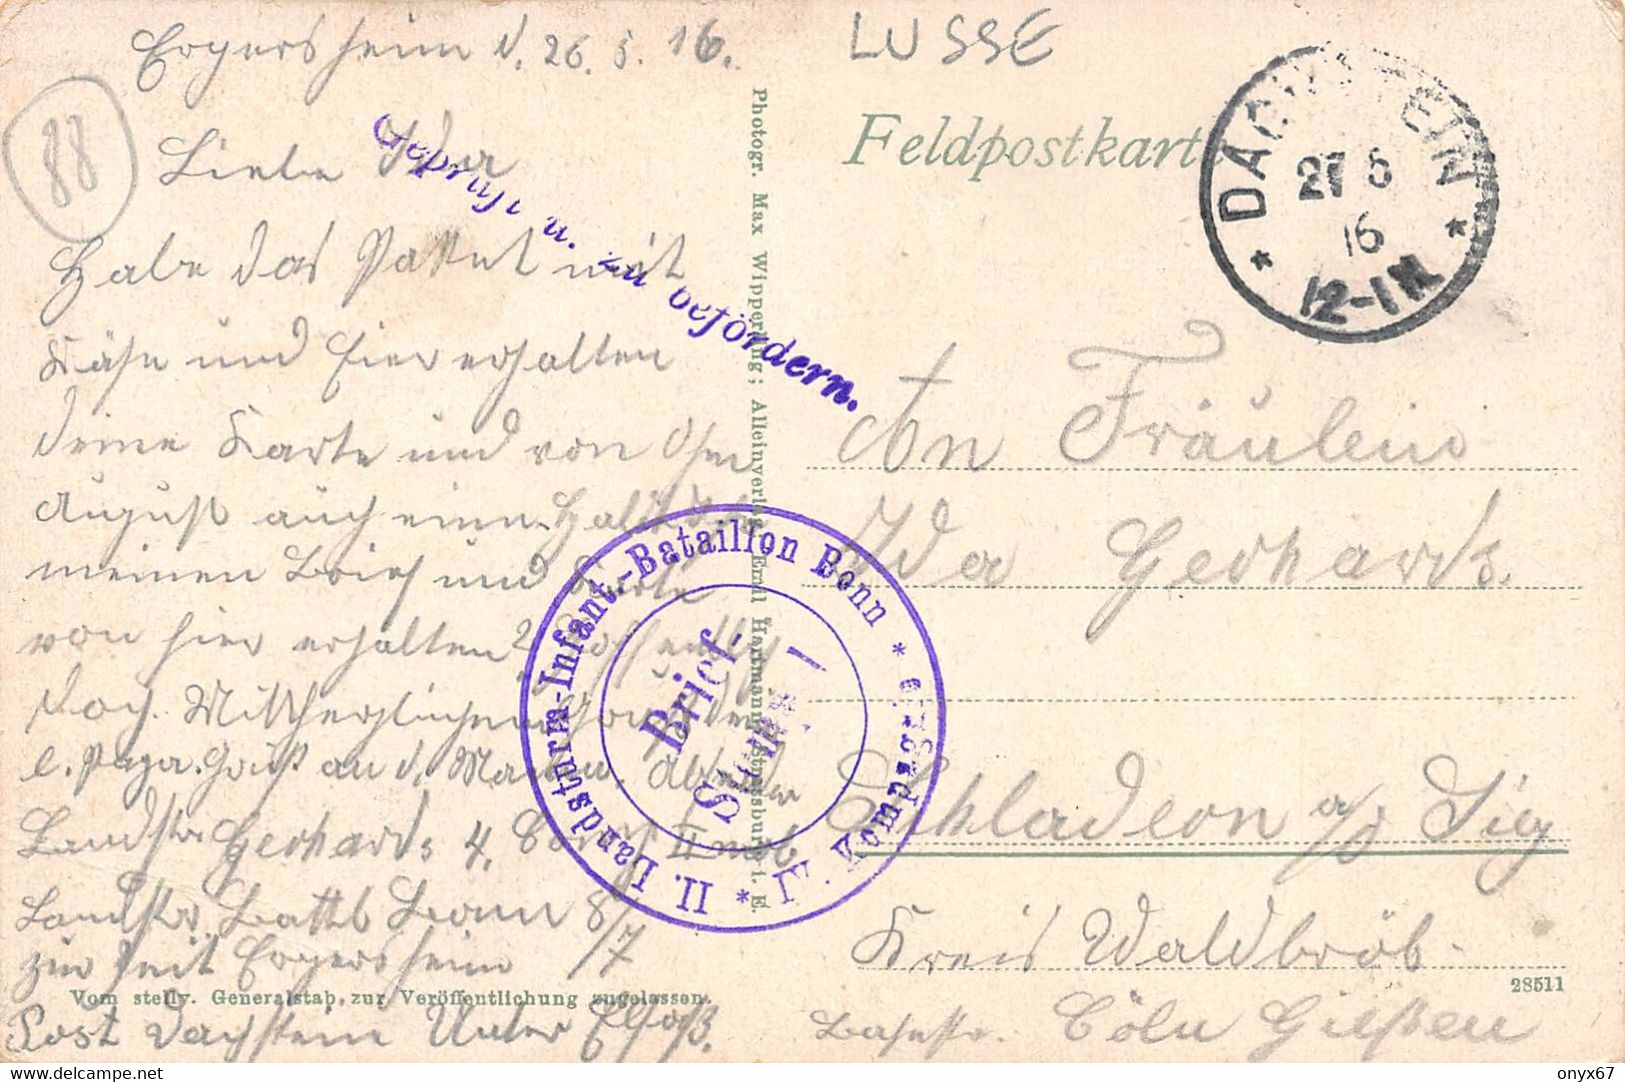 Ergersheim d. 26. 5. 16.
88
Liebe Ida
Habe das Paket mit
Käse und Eier erhalten
deine Karte und von Ohm
August auch einen. Halt du
meinen Brief und Karte
von hier erhalten? Hoffentlich
doch. Mit herzlichem Gruß dein
l. Papa. Gruß an d. Mama.
Landstr. Gerhards 4. Comp II mob
Landstr. Battl Bonn 8/7
zur Zeit Ergersheim
Post Dachstein Unter Elsaß.
Geprüft u. zu befördern.
Vom stellv. Generalstab zur Veröffentlichung zugelassen.
Photogr. Max Wipperling; Alleinverlag Emil Hartmann, Strassburg i. E.
II. Landsturm-Infant.-Bataillon Bonn * 4. Kompagnie *
Brief-
Stempel
LUSSE
Feldpostkarte
DACHSTEIN
27 5
16
12-1N
An Fräulein
Ida Gerhards.
Schladern a/d Sieg
Kreis Waldbröl.
Bahnstr. Cöln Gießen
28511
delcampe.net
onyx67